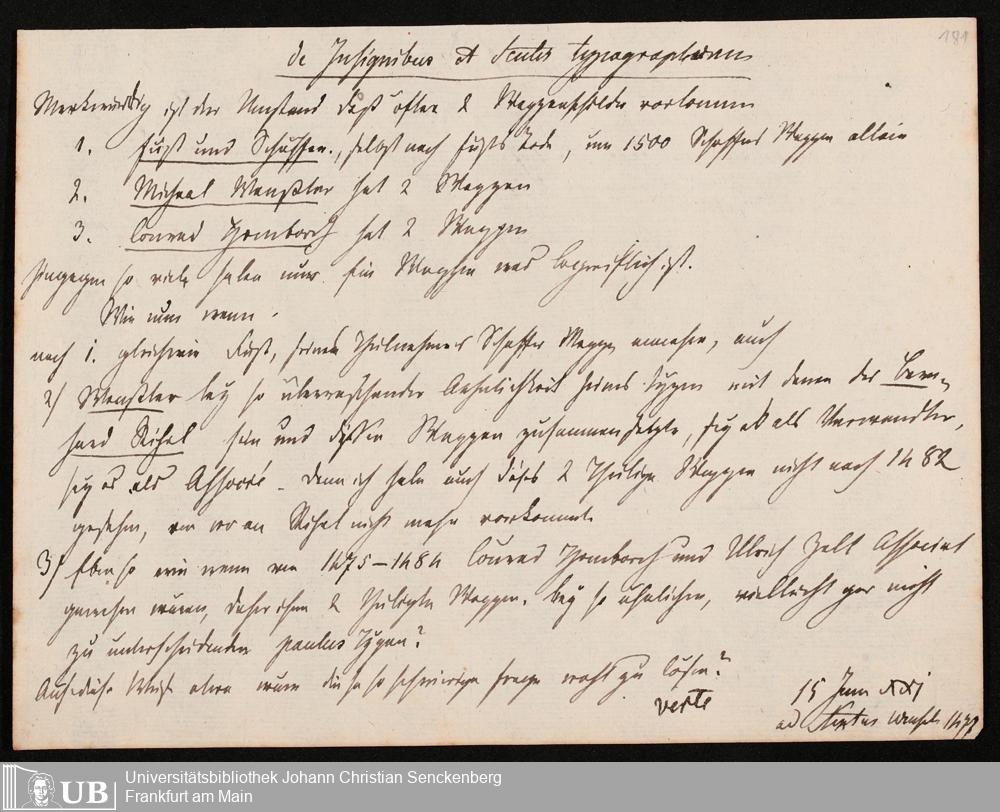 181
de Insignibus et Scutis typographorum
Merkwürdig ist der Umstand daß öfter 2 Wappenschilde vorkommen
1. Fust und Schöffer., selbst nach Fusts Tode, um 1500 Schöffers Wappen allein
2. Michael Wenßler hat 2 Wappen
3. Conrad Homborch hat 2 Wappen
hingegen so viele haben nur ein Wappen was begreiflich ist.
Wie nun wenn
nach 1. gleichwie Fust, seines Theilnehmers Schöffer Wappen annahm, auch
2) Wenßler bey so überraschender Aehnlichkeit seiner Typen mit denen des Bern-
hard Richel sein und dessen Wappen zusammen setzte, sey es als Verwandter,
sey es als Associé - denn ich habe auch dieses 2 theilige Wappen nicht nach 1482
gesehen, von wo an Richel nicht mehr vorkommt
3) Eben so wie wenn von 1475-1484 Conrad Homborch und Ulrich Zell Associirt
gewesen wären, daher ihm 2 theiligte Wappen. bey so ähnlichen, vielleicht gar nicht
zu unterscheidenden Typen?
Auf diese Weise etwa wäre diese so schwierige Frage wohl zu lösen?
verte
15 Juni xxi
ad Sextus 1477
UB Universitätsbibliothek Johann Christian Senckenberg
Frankfurt am Main